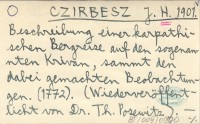 CZIRBESZ J. H. 1901.
Beschreibung einer karpathi-
schen Bergreise auf den sogenan-
nten Kriván, sammt den
dabei gemachten Beobachtun-
gen. (1772). (Wiederveröffent-
licht von Dr. Th. Posewitz.)